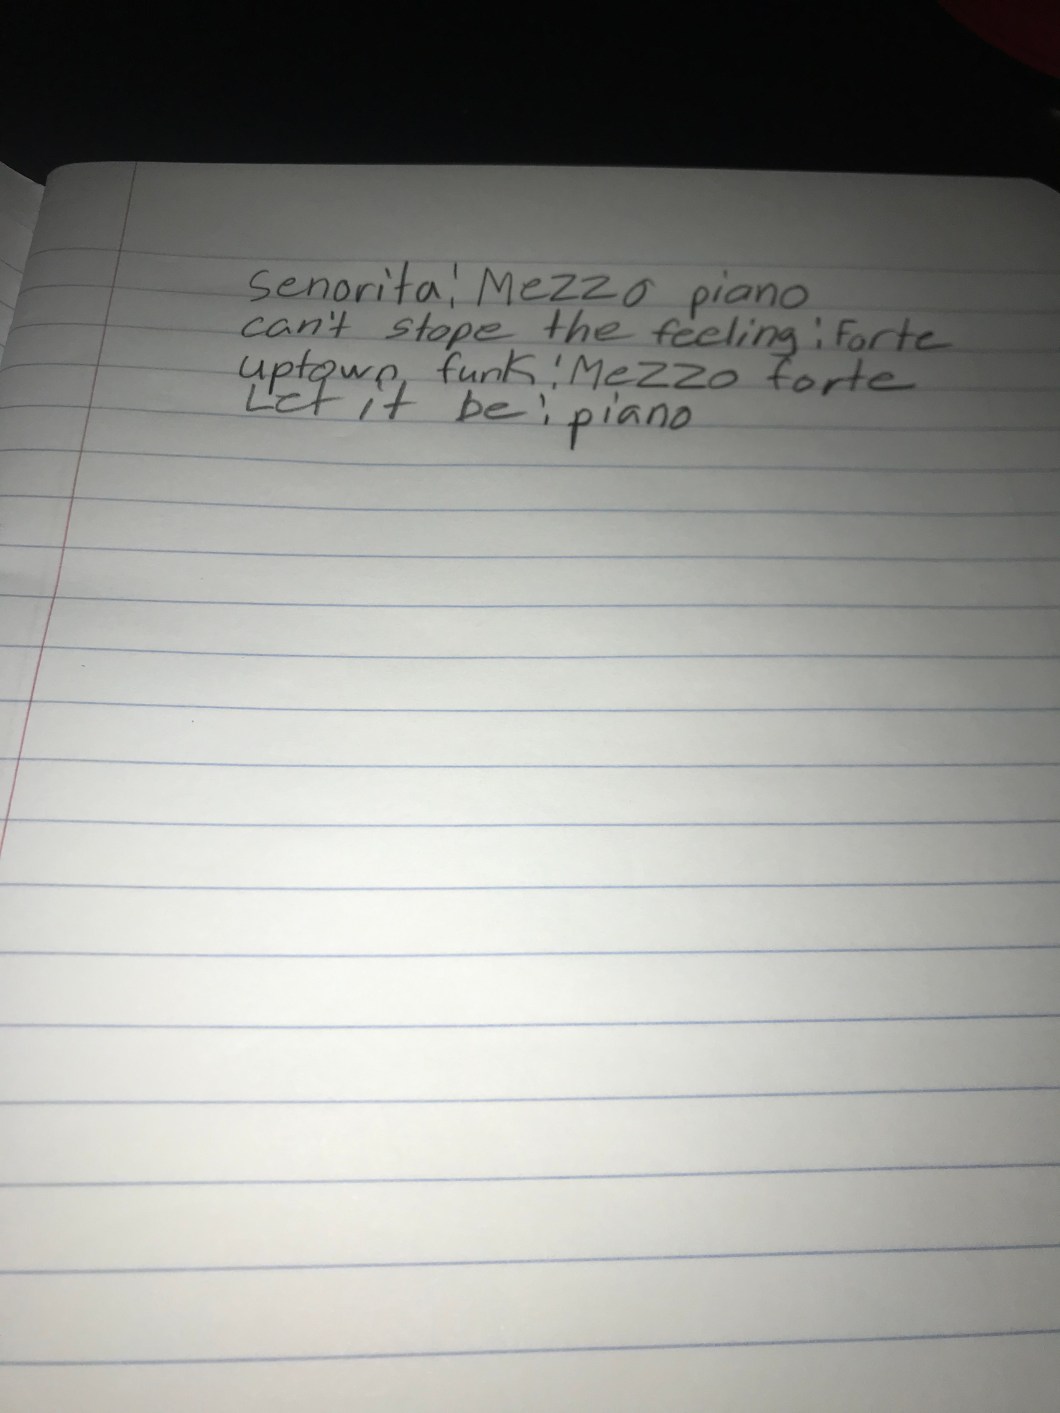 senorita: Mezzo piano
can't stope the feeling: Forte
uptown funk: Mezzo forte
Let it be: piano